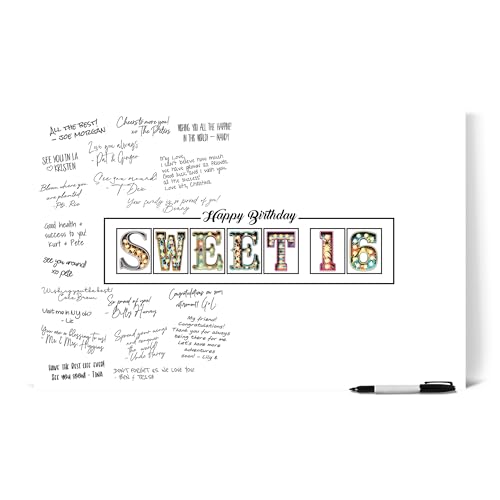 ALL THE BEST!
- JOE MORGAN
Cheers to you!
xo The Peters
WISHING YOU ALL THE HAPPINESS
IN THE WORLD! - MANDY
Love you always
- Pat & Ginger
SEE YOU IN LA
♡ KRISTEN
See you around
- T Dee
My Love,
I can't believe how much
we have grown
Good luck and I wish you
all the success!
Love ya, Christine
Bloom where you
are planted
- Pg. Rio
Your family is so proud of you!
- Bunny
Good health +
success to you!
Kurt + Pete
Happy Birthday
SWEET 16
see you around!
xo pete
Wishing you the best!
Cake Brown
So proud of you!
- Billy Harvey
Congratulations on your
retirement! G.L.
Visit me in NY ok?
- Liz
You are a blessing to us!
- Mr. & Mrs. Higgins
Spread your wings
and conquer
the world
- Uncle Harvey
My friend!
Congratulations!
Thank you for always
being there for me
Let's have more
adventures
soon! - Lily B
HAVE THE BEST LIFE EVER!
SEE YOU AROUND - TINA
DON'T FORGET US WE LOVE YOU
- BEN & TRISH